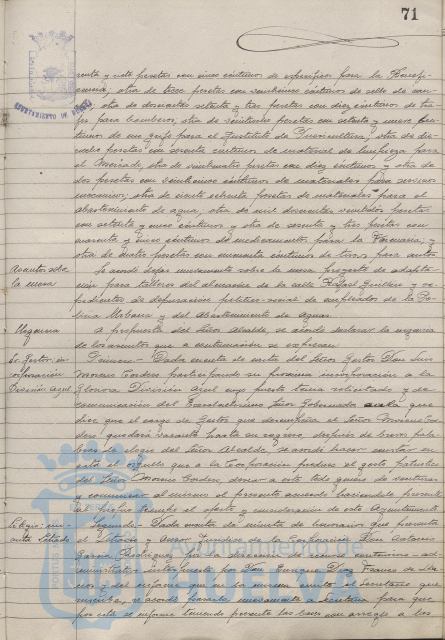 71
AYUNTAMIENTO DE
renta y siete pesetas con cinco céntimos de específicos para la Benefi-
cencia, otra de trece pesetas con veinticinco céntimos de
otra de doscientas setenta y tres pesetas con diez céntimos de tra-
jes para bomberos, otra de veintisiete pesetas con setenta y nueve cén-
timos de un grifo para el Instituto de Puericultura, otra de die-
ciseis pesetas con sesenta céntimos de material de limpieza para
el Mercado, otra de veinticuatro pesetas con diez céntimos y otra de
dos pesetas con veinticinco céntimos de materiales para servicio
mecánico, otra de ciento setenta pesetas de materiales para el
abastecimiento de agua, otra de mil doscientas pesetas
con setenta y cinco céntimos y otra de sesenta y tres pesetas con
cuarenta y cinco céntimos de medicamentos para la Farmacia, y
otra de cuatro pesetas con cincuenta céntimos de tiras para autos
Asuntos sobre
la mesa
Se acordó dejar nuevamente sobre la mesa, proyecto de adapta-
ción para talleres del almacén de la calle Rafael Guillén y ex-
pedientes de depuración político-social de empleados de la Po-
licía Urbana y del Abastecimiento de Aguas.
Urgencia
A propuesta del Señor Alcalde, se acordó declarar la urgencia
de los asuntos que a continuación se expresan
Sr. Gestor, in-
corporación
División Azul
Primero = Dada cuenta de oficio del Señor Gestor Don Luis
Moreno Cordero participando su próxima incorporación a la
Gloriosa División Azul cuyo puesto tenía solicitado y de
comunicación del Excelentísimo Señor Gobernador que
dice que el cargo de Gestor que desempeña el Señor Moreno Cor-
dero quedará vacante hasta su regreso, después de breves pala-
bras de elogio del Señor Alcalde, se acordó hacer constar en
acta el orgullo que a la Corporación produce el gesto patriótico
del Señor Moreno Cordero, desear a este todo género de venturas
y comunicar al mismo el presente acuerdo haciéndole presente
al propio tiempo el afecto y consideración de este Ayuntamiento
Segundo = Dada cuenta de minuta de honorarios que presenta
el Letrado y Asesor Jurídico de la Corporación Don Antonio
García Rodríguez por la dirección de recurso contencioso-ad-
ministrativo interpuesto por Don Enrique Díaz Franco de
y del informe que en la misma emite el Secretario que
suscribe, se acordó pasarlo nuevamente a Secretaría para que
por esta se informe teniendo presente las bases con arreglo a las